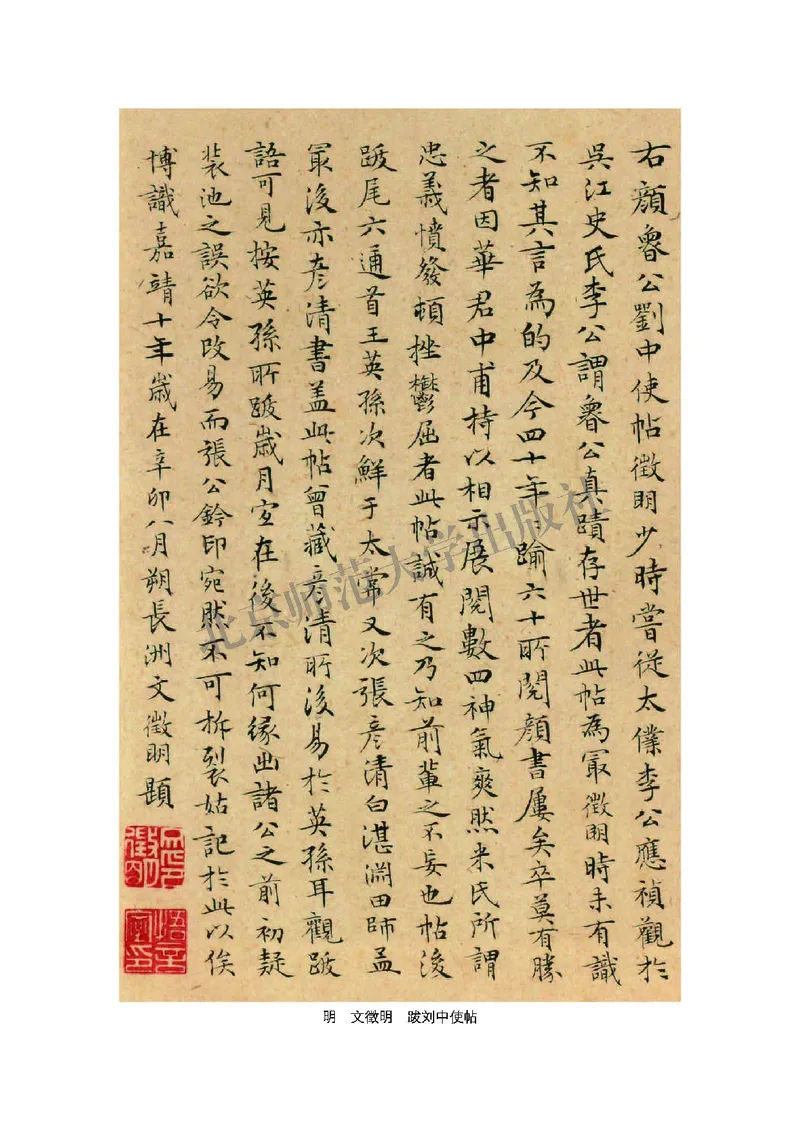 右顏魯公劉中使帖徵明少時嘗從太僕李公應禎觀於
吳江史氏李公謂魯公真蹟存世者此帖為冣徵明時未有識
不知其言為的及今四十年年踰六十所閱顏書屢矣卒莫有勝
之者因華君中甫持以相示展閱數四神氣爽然米氏所謂
忠義憤發頓挫鬱屈者此帖誠有之乃知前輩之不妄也帖後
跋尾六通首王英孫次鮮于太常又次張彥清白湛淵田師孟
冣後亦彥清書盖此帖曾藏彥清所後易於英孫耳觀跋
語可見按英孫所跋歲月宜在後不知何緣出諸公之前初疑
裝池之誤欲令改易而張公鈐印宛然不可拆裂姑記於此以俟
博識嘉靖十年歲在辛卯八月朔長洲文徵明題
北京师范大学出版社
明　文徵明　跋刘中使帖